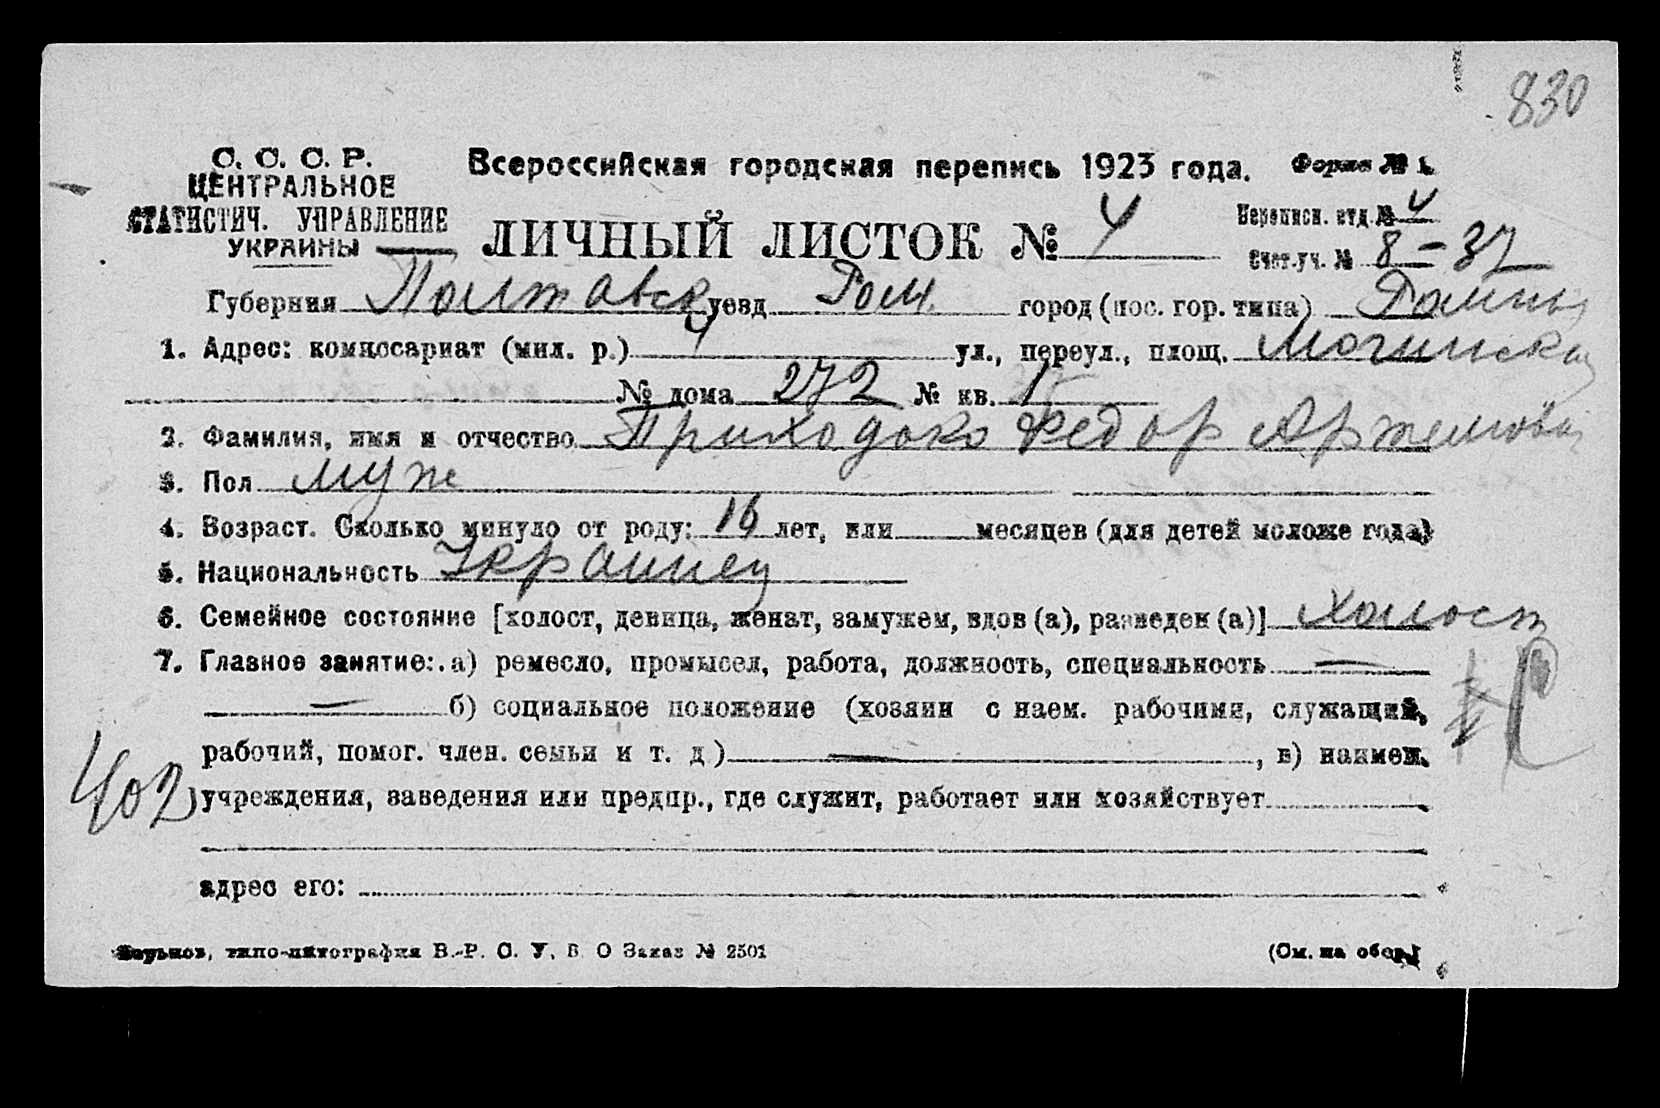 830
С. С. С. Р.
ЦЕНТРАЛЬНОЕ
СТАТИСТИЧ. УПРАВЛЕНИЕ
УКРАИНЫ
Всероссийская городская перепись 1923 года.
Форма № 1.
ЛИЧНЫЙ ЛИСТОК № 4
Переписн. отд. № 4
Счет.уч. № 8-37
Губерния Полтавск уезд Ром. город (пос. гор. типа) Ромны
1. Адрес: комиссариат (мил. р.) 4 ул., переул., площ.
№ дома 272 № кв. 1
2. Фамилия, имя и отчество Приходько Федор Артемович
3. Пол муж
4. Возраст. Сколько минуло от роду: 16 лет, или месяцев (для детей моложе года)
5. Национальность Украинец
6. Семейное состояние [холост, девица, женат, замужем, вдов (а), разведен (а)] Холост
7. Главное занятие: а) ремесло, промысел, работа, должность, специальность —
— б) социальное положение (хозяин с наем. рабочими, служащий,
рабочий, помог. член. семьи и т. д.) — , в) наимен.
402
учреждения, заведения или предпр., где служит, работает или хозяйствует
адрес его:
Харьков, типо-литография В.-Р. С. У, В. О Заказ № 2501
(См. на обор.)